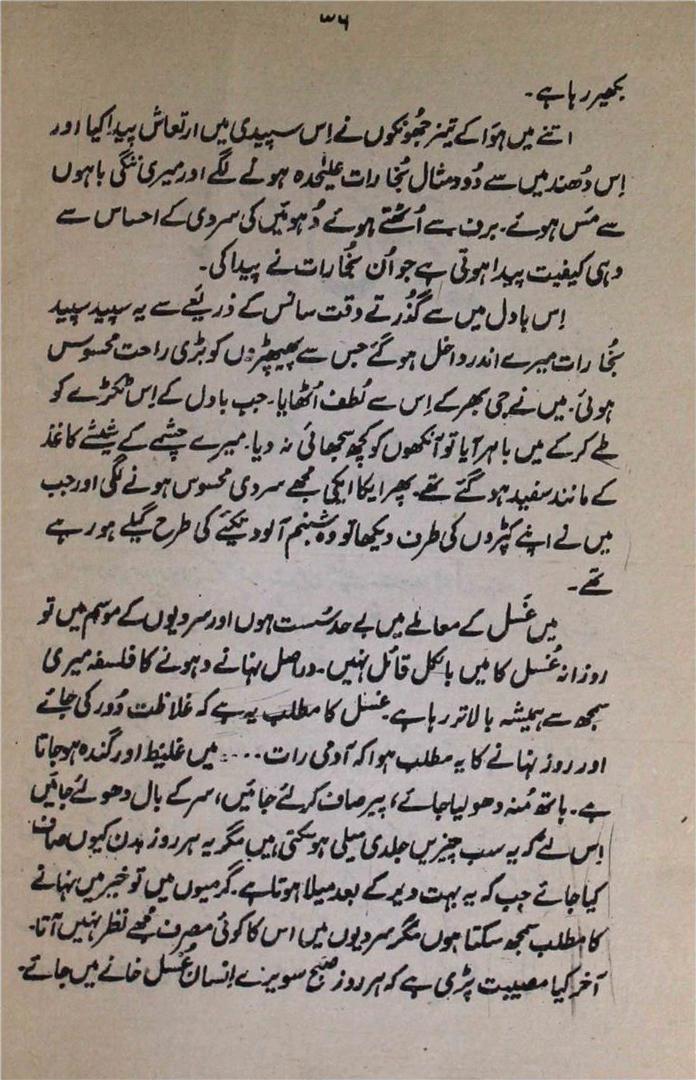 ۳۶
بکھیر رہا ہے۔
اتنے میں ہَوا کے تیز جھونکوں نے اِس سپیدی میں ارتعاش پیدا کیا اور
اِس دُھند میں سے دُود مثال بُخارات علیٰحدہ ہونے لگے اور میری ننگی باہوں
سے مَس ہوئے۔ برف سے اُٹھتے ہوئے دُھوئیں کی سردی کے احساس سے
وہی کیفیت پیدا ہوتی ہے جو اُن بخُارات نے پیدا کی۔
اِس بادل میں سے گذُرتے وقت سانس کے ذریعے سے یہ سپید سپید
بخُارات میرے اندر داخل ہو گئے جس سے پھیپھڑوں کو بڑی راحت محسوس
ہوئی۔ میں نے جی بھر کے اِس سے لُطف اُٹھایا۔ جب بادل کے اِس ٹکڑے کو
طے کرکے میں باہر آیا تو آنکھوں کو کچھ سجھائی نہ دیا۔ میرے چشمے کے شیشے کاغذ
کے مانند سفید ہو گئے تھے۔ پھر ایکا ایکی مجھے سردی محسوس ہونے لگی اور جب
میں نے اپنے کپڑوں کی طرف دیکھا تو وہ شبنم آلود تکیئے کی طرح گیلے ہو رہے
تھے۔
میں غَسل کے معاملے میں بے حد سُست ہوں اور سردیوں کے موسم میں تو
روزانہ غُسل کا میں بالکل قائل نہیں۔ دراصل نہانے دھونے کا فلسفہ میری
سمجھ سے ہمیشہ بالا تر رہا ہے۔ غسل کا مطلب یہ ہے کہ غلاظت دُور کی جائے
اور روز نہانے کا یہ مطلب ہوا کہ آدمی رات .... میں غلیظ اور گندہ ہو جاتا
ہے۔ ہاتھ مُنہ دھو لیا جائے، پیر صاف کر لئے جائیں، سر کے بال دھو لئے جائیں
اِس لئے کہ یہ سب چیزیں جلدی میلی ہو سکتی ہیں مگر یہ ہر روز بدن کیوں صاف
کیا جائے جب کہ یہ بہت دیر کے بعد میلا ہوتا ہے۔ گرمیوں میں تو خیر میں نہانے
کا مطلب سمجھ سکتا ہوں مگر سردیوں میں اس کا کوئی مصرف مجھے نظر نہیں آتا۔
آخر کیا مصیبت پڑی ہے کہ ہر روز صبح سویرے اِنسان غُسل خانے میں جائے۔